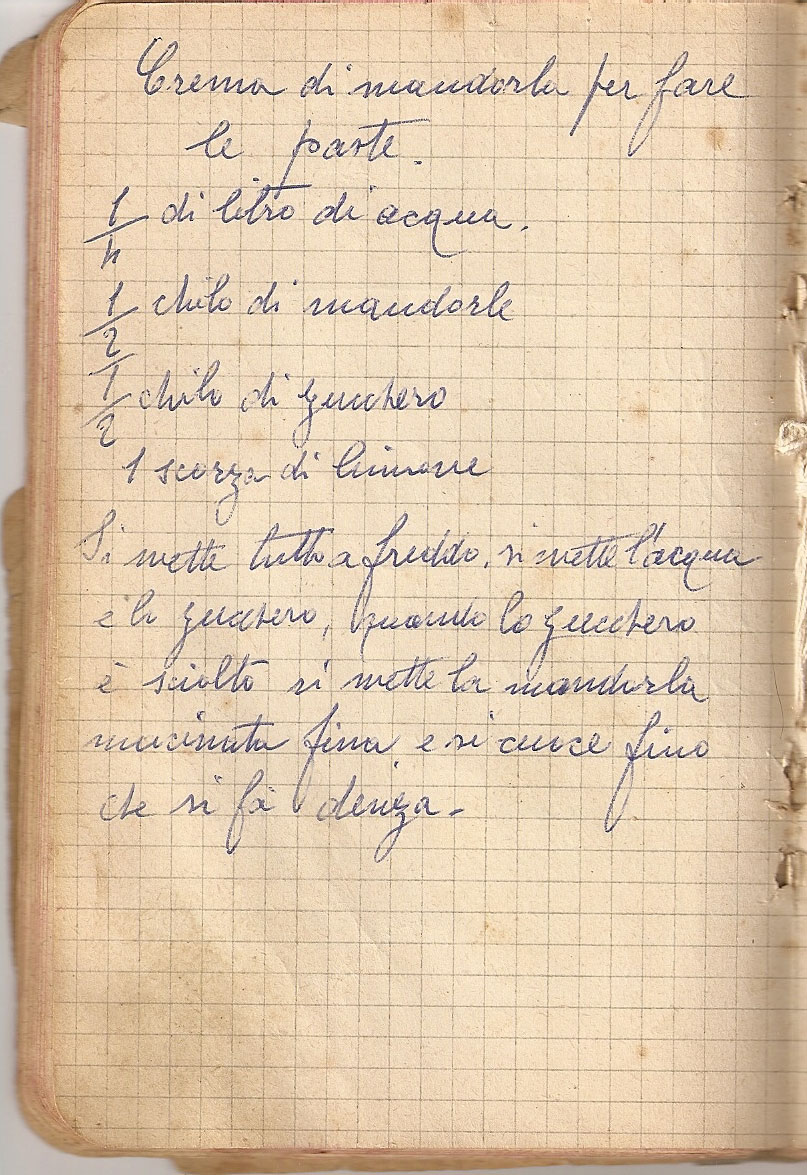 Crema di mandorla per fare
le paste.
1/4 di litro di acqua.
1/2 chilo di mandorle
1/2 chilo di zucchero
1 scorza di limone
Si mette tutto a freddo, si mette l'acqua
e lo zucchero, quando lo zucchero
è sciolto si mette la mandorla
macinata fina e si cuoce fino
che si fà denza.